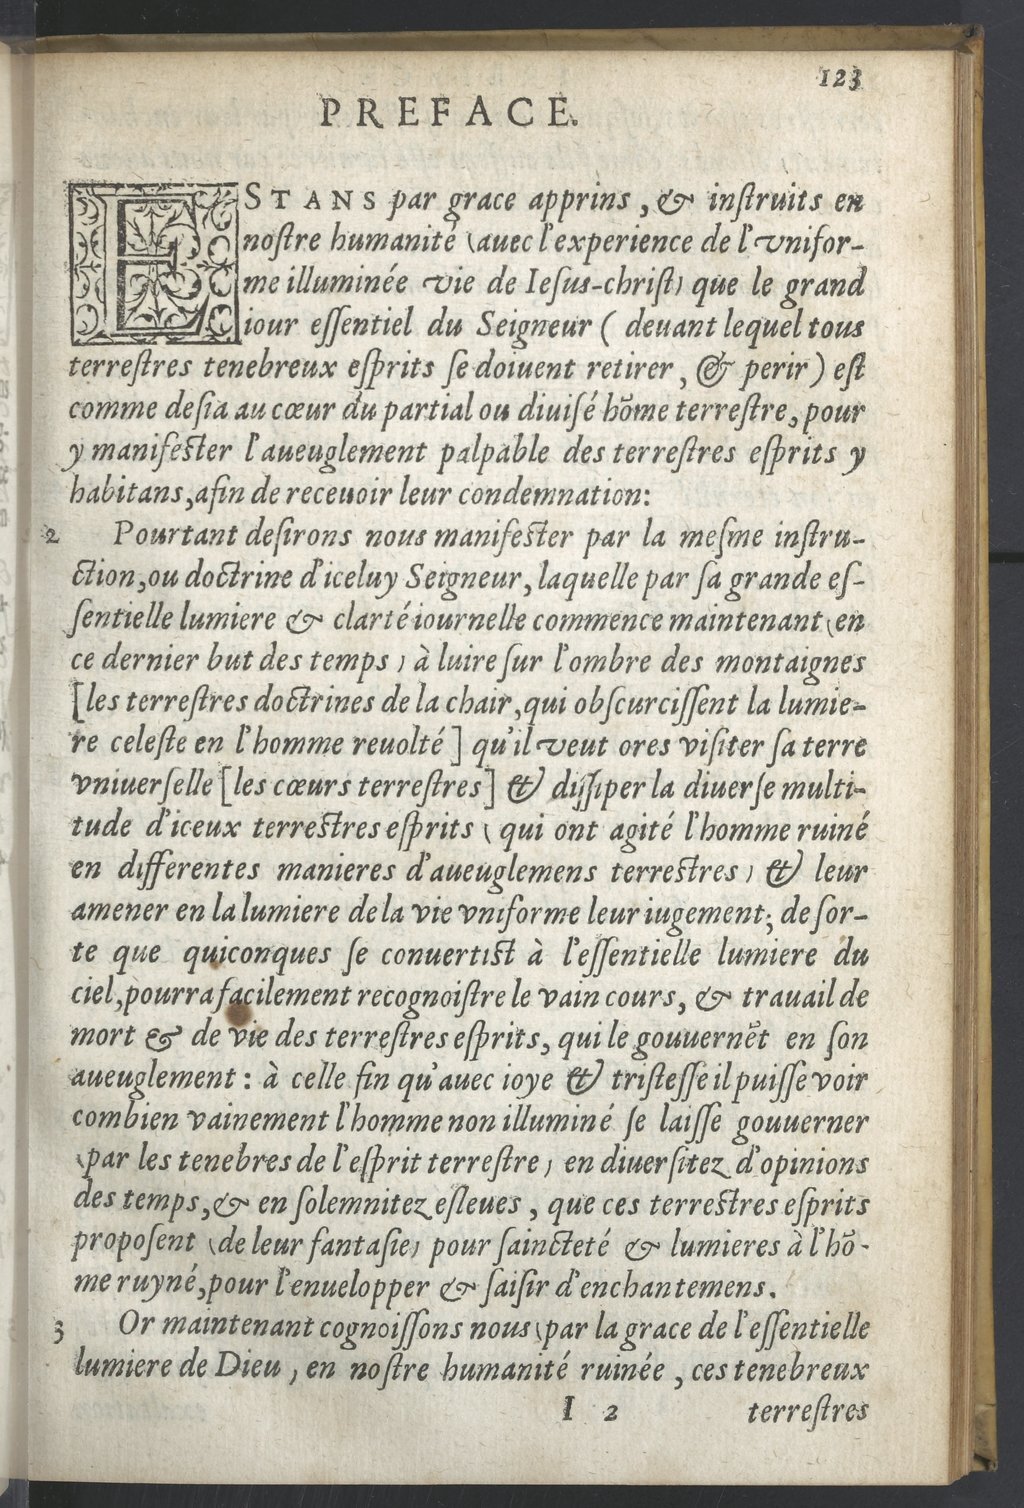 123
PREFACE.
ESTANS par grace apprins, & inſtruits en
noſtre humanité (auec l'experience de l'vnifor-
me illuminée vie de Ieſus-chriſt) que le grand
iour eſſentiel du Seigneur ( deuant lequel tous
terreſtres tenebreux eſprits ſe doiuent retirer, & perir) eſt
comme deſia au cœur du partial ou diuiſé hõme terreſtre, pour
y manifeſter l'aueuglement palpable des terreſtres eſprits y
habitans, afin de receuoir leur condemnation:
2 Pourtant deſirons nous manifeſter par la meſme inſtru-
ction, ou doctrine d'iceluy Seigneur, laquelle par ſa grande eſ-
ſentielle lumiere & clarté iournelle commence maintenant (en
ce dernier but des temps) à luire ſur l'ombre des montaignes
[les terreſtres doctrines de la chair, qui obſcurciſſent la lumie-
re celeſte en l'homme reuolté] qu'il veut ores viſiter ſa terre
vniuerſelle [les cœurs terreſtres] & diſſiper la diuerſe multi-
tude d'iceux terreſtres eſprits (qui ont agité l'homme ruiné
en differentes manieres d'aueuglemens terreſtres) & leur
amener en la lumiere de la vie vniforme leur iugement; de ſor-
te que quiconques ſe conuertiſt à l'eſſentielle lumiere du
ciel, pourra facilement recognoiſtre le vain cours, & trauail de
mort & de vie des terreſtres eſprits, qui le gouuernẽt en ſon
aueuglement: à celle fin qu'auec ioye & triſteſſe il puiſſe voir
combien vainement l'homme non illuminé ſe laiſſe gouuerner
(par les tenebres de l'eſprit terreſtre) en diuerſitez d'opinions
des temps, & en ſolemnitez eſleues, que ces terreſtres eſprits
propoſent (de leur fantaſie) pour ſaincteté & lumieres à l'hõ-
me ruyné, pour l'enuelopper & ſaiſir d'enchantemens.
3 Or maintenant cognoiſſons nous (par la grace de l'eſſentielle
lumiere de Dieu) en noſtre humanité ruinée, ces tenebreux
I 2 terreſtres